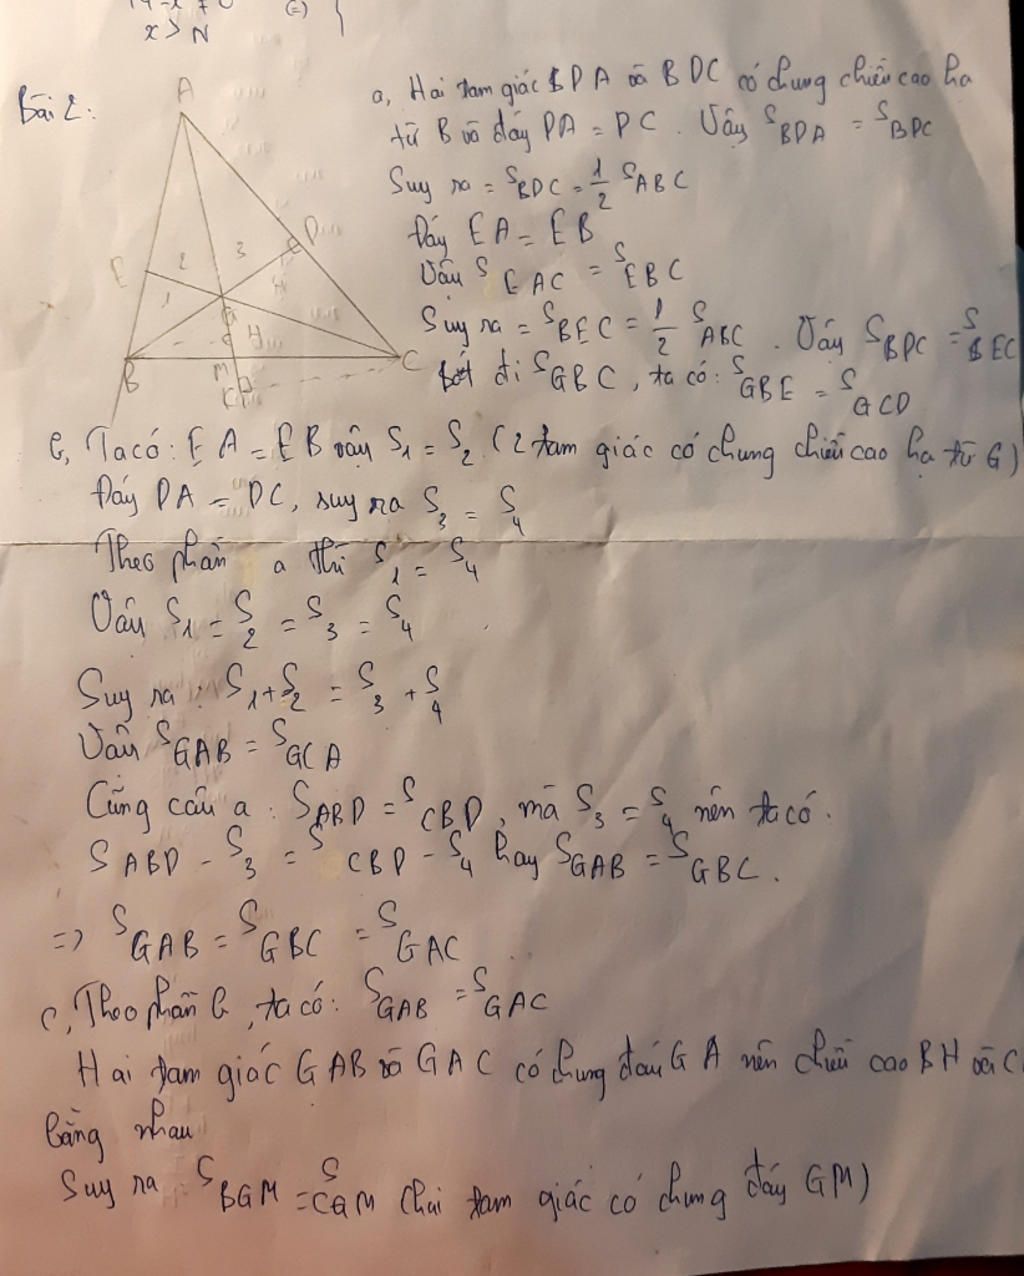 x > N
Bài 2:
A
E
D
2
3
1
4
G
H
B
M
C
K
a, Hai tam giác BDA và BDC có chung chiều cao hạ
từ B và đáy DA = DC. Vậy S BDA = S BDC
Suy ra = S BDC = 1/2 S ABC
Đáy EA = EB
Vậy S EAC = S EBC
Suy ra = S BEC = 1/2 S ABC. Vậy S BDC = S BEC
Bớt đi S GBC, ta có: S GBE = S GCD
b, Ta có: EA = EB vậy S1 = S2 (2 tam giác có chung chiều cao hạ từ G)
Đáy DA = DC, suy ra S3 = S4
Theo phần a thì S1 = S4
Vậy S1 = S2 = S3 = S4
Suy ra: S1 + S2 = S3 + S4
Vậy S GAB = S GCA
Cũng câu a: S ABD = S CBD, mà S3 = S4 nên ta có.
S ABD - S3 = S CBD - S4 hay S GAB = S GBC.
=> S GAB = S GBC = S GAC
c, Theo phần b, ta có: S GAB = S GAC
Hai tam giác GAB và GAC có chung đáy GA nên chiều cao BH và C
bằng nhau
Suy ra S BGM = S CGM (hai tam giác có chung đáy GM)